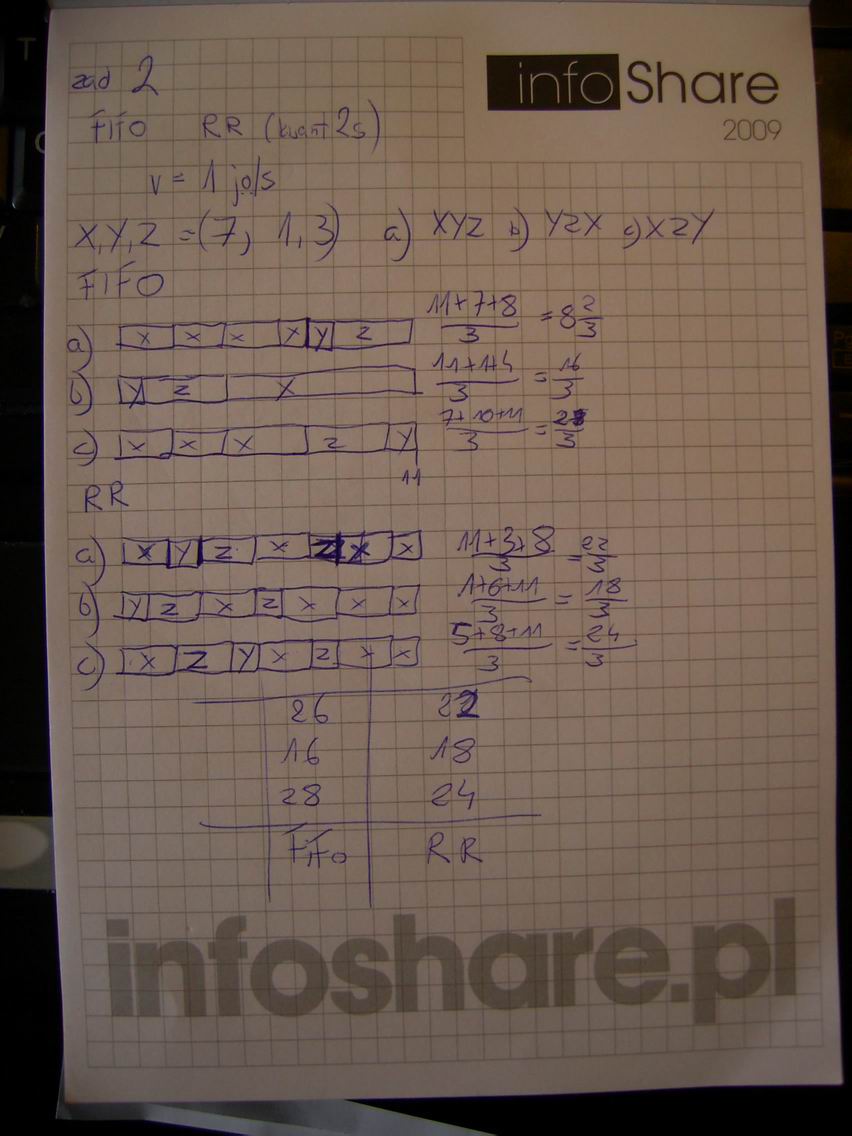 infoShare
2009
zad 2
FIFO RR (kwant 2s)
v = 1 jo/s
X,Y,Z =(7, 1,3) a) XYZ b) YZX c) XZY
FIFO
a) X X X X Y Z 11+7+8/3 = 8 2/3
b) Y Z X 11+1+4/3 = 16/3
c) X X X Z Y 7+10+11/3 = 28/3
11
RR
a) X Y Z X Z X X 11+3+8/3 = 22/3
b) Y Z X Z X X X 1+6+11/3 = 18/3
c) X Z Y X Z X X 5+8+11/3 = 24/3
26 22
16 18
28 24
FIFO RR
infoshare.pl